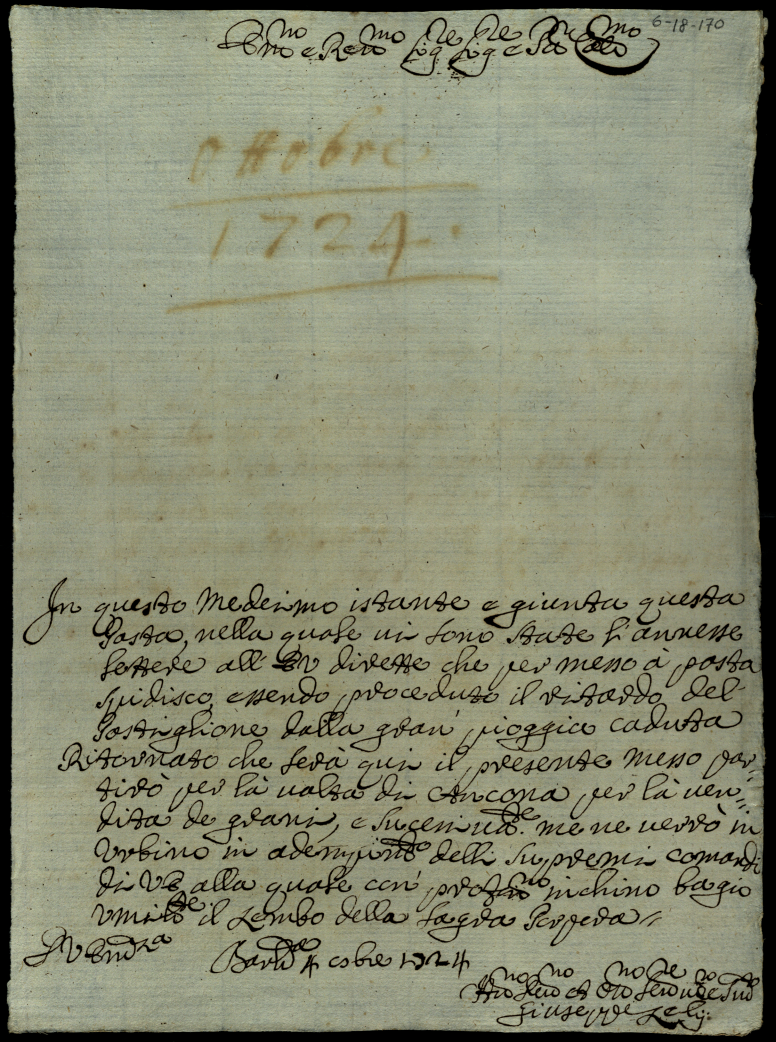 6-18-170
Em.no e Rev.mo Sig.re Sig.re e P.ron Col.mo
Ottobre.
1724.
In questo Medesimo istante e giunta questa
Posta, nella quale vi sono state l'annesse
lettere all' Ev dirette che per messo à posta
spidisco, essendo proceduto il ritardo del
Postiglione dalla gran' pioggia caduta
Ritornato che serà quà il presente messo par=
tirò per la volta di Ancona per là ven=
dita de grani, e sucessiva.te me ne verrò in
Urbino in adempim.to delli Supremi comandi
di VE alla quale con' prof.mo inchino bagio
umilm.te il Lembo della Sagra Porpora
D V Em.za
4 8bre 1724
Giuseppe